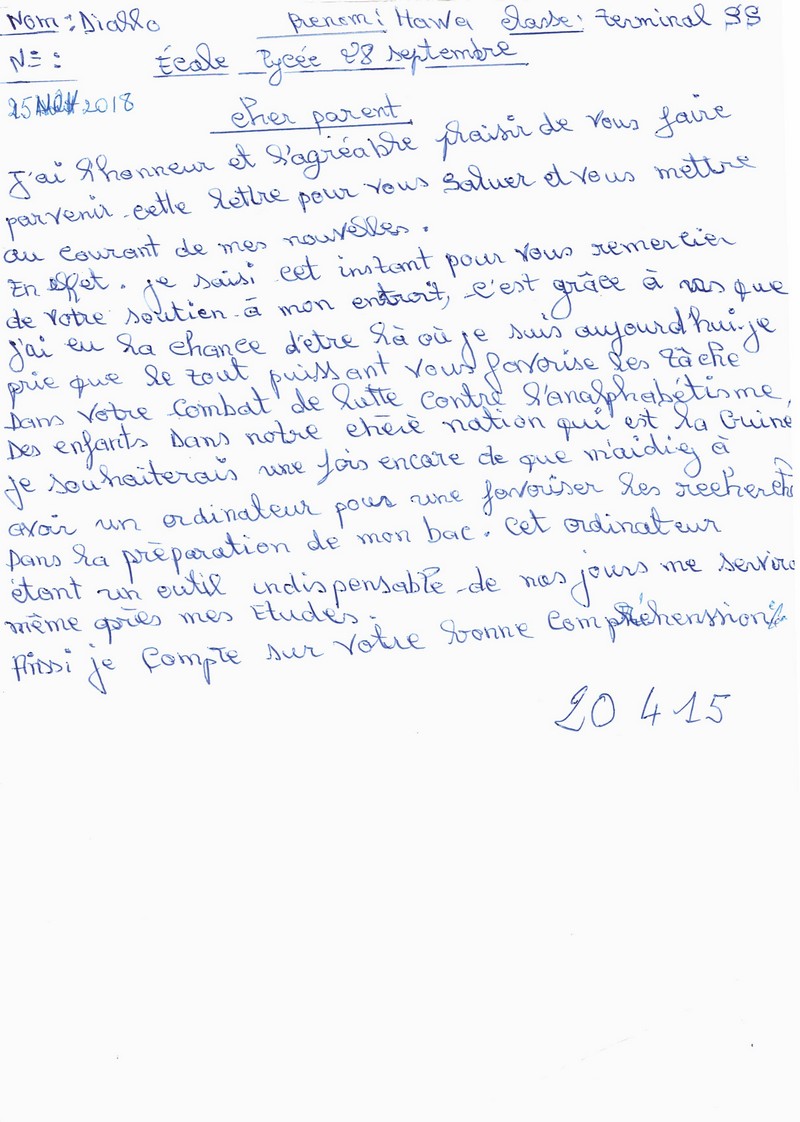 Nom : Diallo Prenom : Hawa classe : Terminal SS
N= :
École Lycée 28 septembre
25 2018
cher parent
J'ai l'honneur et l'agréable plaisir de vous faire
parvenir cette lettre pour vous saluer et vous mettre
au courant de mes nouvelles.
En effet. je saisi cet instant pour vous remercier
de votre soutien à mon entroit, c'est grâce à vos que
j'ai eu la chance d'être là où je suis aujourd'hui. je
prie que le tout puissant vous favorise les tâche
Dans votre combat de lutte contre l'analphabétisme,
Des enfants Dans notre chère nation qui est la Guiné
je souhaiterais une fois encore de que m'aidiez à
avoir un ordinateur pour une favoriser les recherch
Dans la préparation de mon bac. cet ordinateur
étant un outil indispensable de nos jours me servira
même après mes Etudes.
Ainsi je compte sur votre bonne compréhenssion
20 415